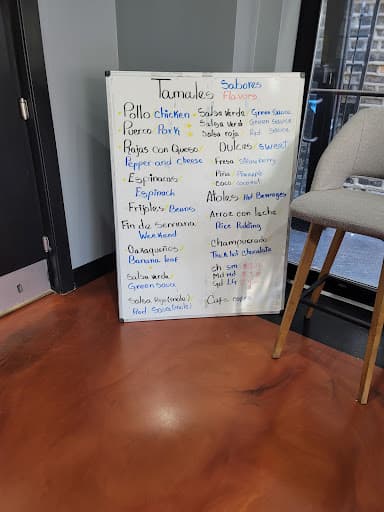 Tamales
Sabores
Flavors
Pollo chicken
Puerco Pork
Rajas con Queso
Pepper and cheese
Espinacas
Espinach
Frijoles Beans
Fin de semana
Weekend
Oaxaqueños
Banana leaf
Salsa verde
Green Sauce
Salsa Roja (mole)
Red Sauce (mole)
Salsa Verde / Green Sauce
Salsa verd Green Sauce
Salsa roja Red Sauce
Dulces / sweet
Fresa strawberry
Piña Pineapple
coco coconut
Atoles Hot Beverages
Arroz con leche
Rice Pudding
Champurrado
Thick hot chocolate
ch sm
Md md
Gd LG
Cafe